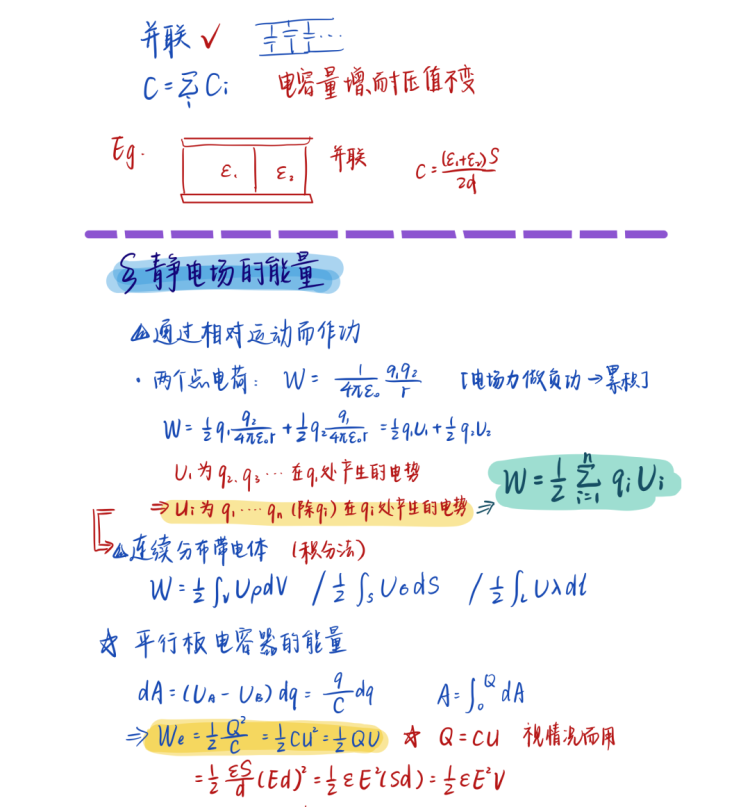 并联 ✓
C = Σᵢ Cᵢ 电容量增,而耐压值不变
Eg. ε₁ ε₂ 并联 C = (ε₁+ε₂)S / 2d
§ 静电场的能量
△ 通过相对运动而作功
· 两个点电荷: W = 1/(4πε₀) q₁q₂/r [电场力做负功 → 累积]
W = ½ q₁ q₂/(4πε₀r) + ½ q₂ q₁/(4πε₀r) = ½ q₁U₁ + ½ q₂U₂
U₁ 为 q₂、q₃ … 在 q₁ 处产生的电势
⇒ Uᵢ 为 q₁ ⋯ qₙ (除qᵢ) 在 qᵢ 处产生的电势 ⇒ W = ½ Σᵢ₌₁ⁿ qᵢUᵢ
△ 连续分布带电体 (积分法)
W = ½ ∫ᵥ UρdV / ½ ∫ₛ UσdS / ½ ∫_L Uλdl
☆ 平行板电容器的能量
dA = (U_A - U_B) dq = q/C dq A = ∫₀^Q dA
⇒ We = ½ Q²/C = ½ CU² = ½ QU ☆ Q = CU 视情况而用
= ½ εS/d (Ed)² = ½ εE²(Sd) = ½ εE²V